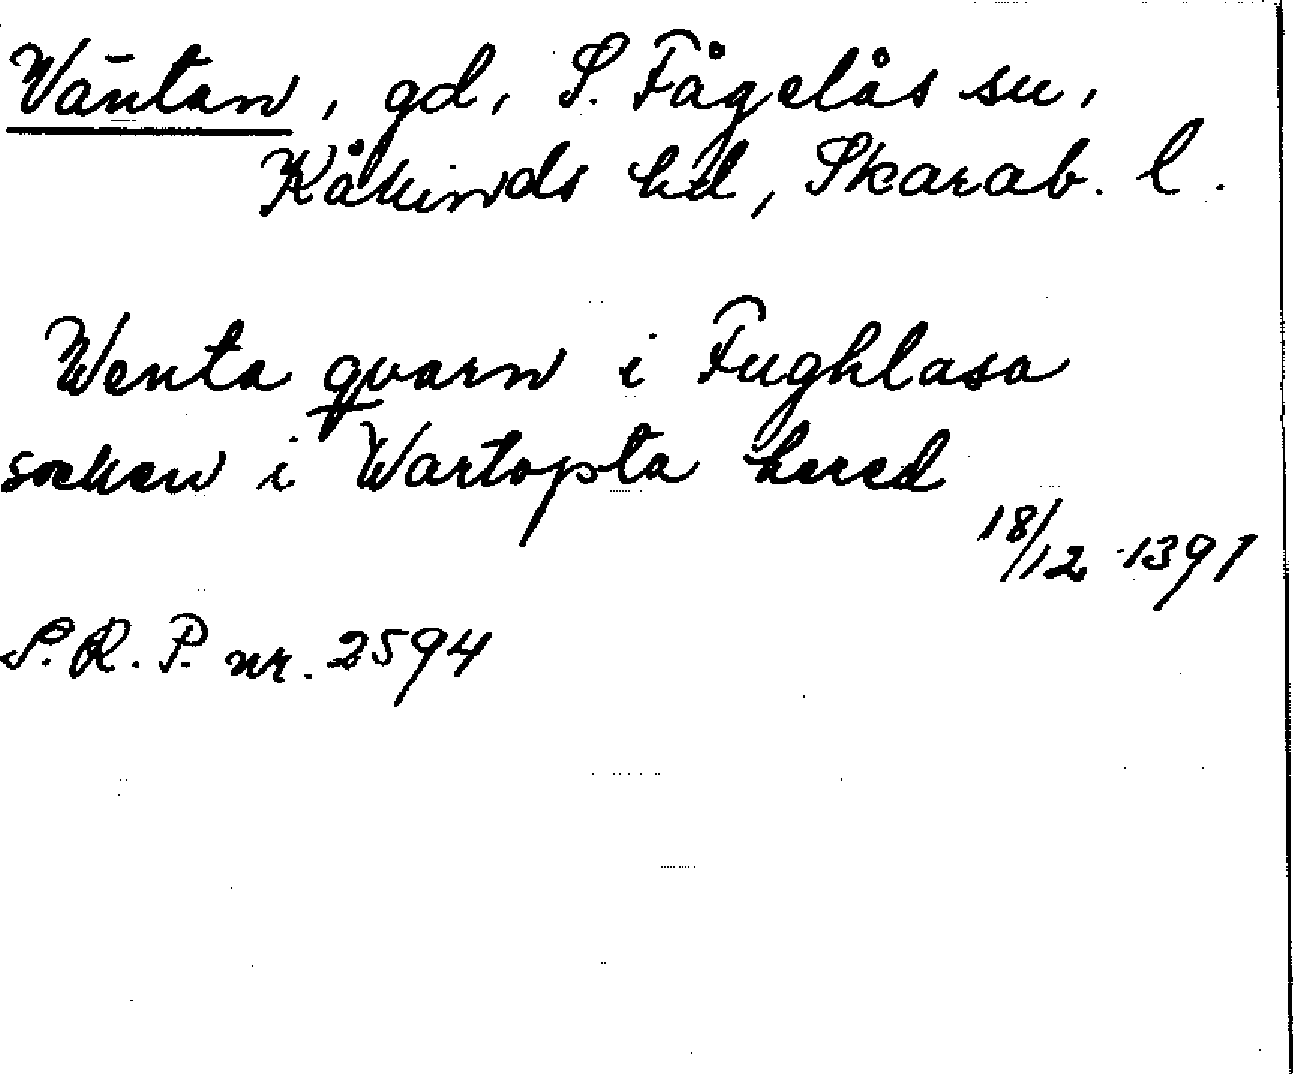 Wäntan, gd, S. Fågelås sn,
Kåkinds hd, Skarab. l.
Wenta qvarn i Fughlasa
soeken i Wartopta hered
18/12 1391
S. R. P. nr. 2594